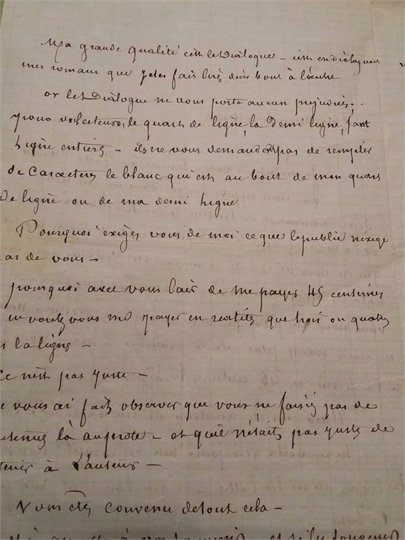 Ma grande qualité c'est le Dialogue – c'est en dialoguant
mes romans que je les fais lire d'un bout à l'autre
or le Dialogue ne vous porte aucun préjudice.
pour vos lecteurs, le quart de ligne, la Demi ligne, font
ligne entière – ils ne vous demandent pas de remplir
de caractères le blanc qui est au bout de mon quart
De ligne ou de ma demi ligne
Pourquoi exigez vous de moi ce que le public n'exige
pas de vous –
pourquoi avec vous l'air de me payer 45 centimes
voulez vous me payer en réalité que trois ou quatre
la ligne –
Ce n'est pas juste –
vous ai fait observer que vous ne faisiez pas de
retenue la – et qu'il n'était pas juste de
à l'auteur –
Vous êtes convenu de tout cela –